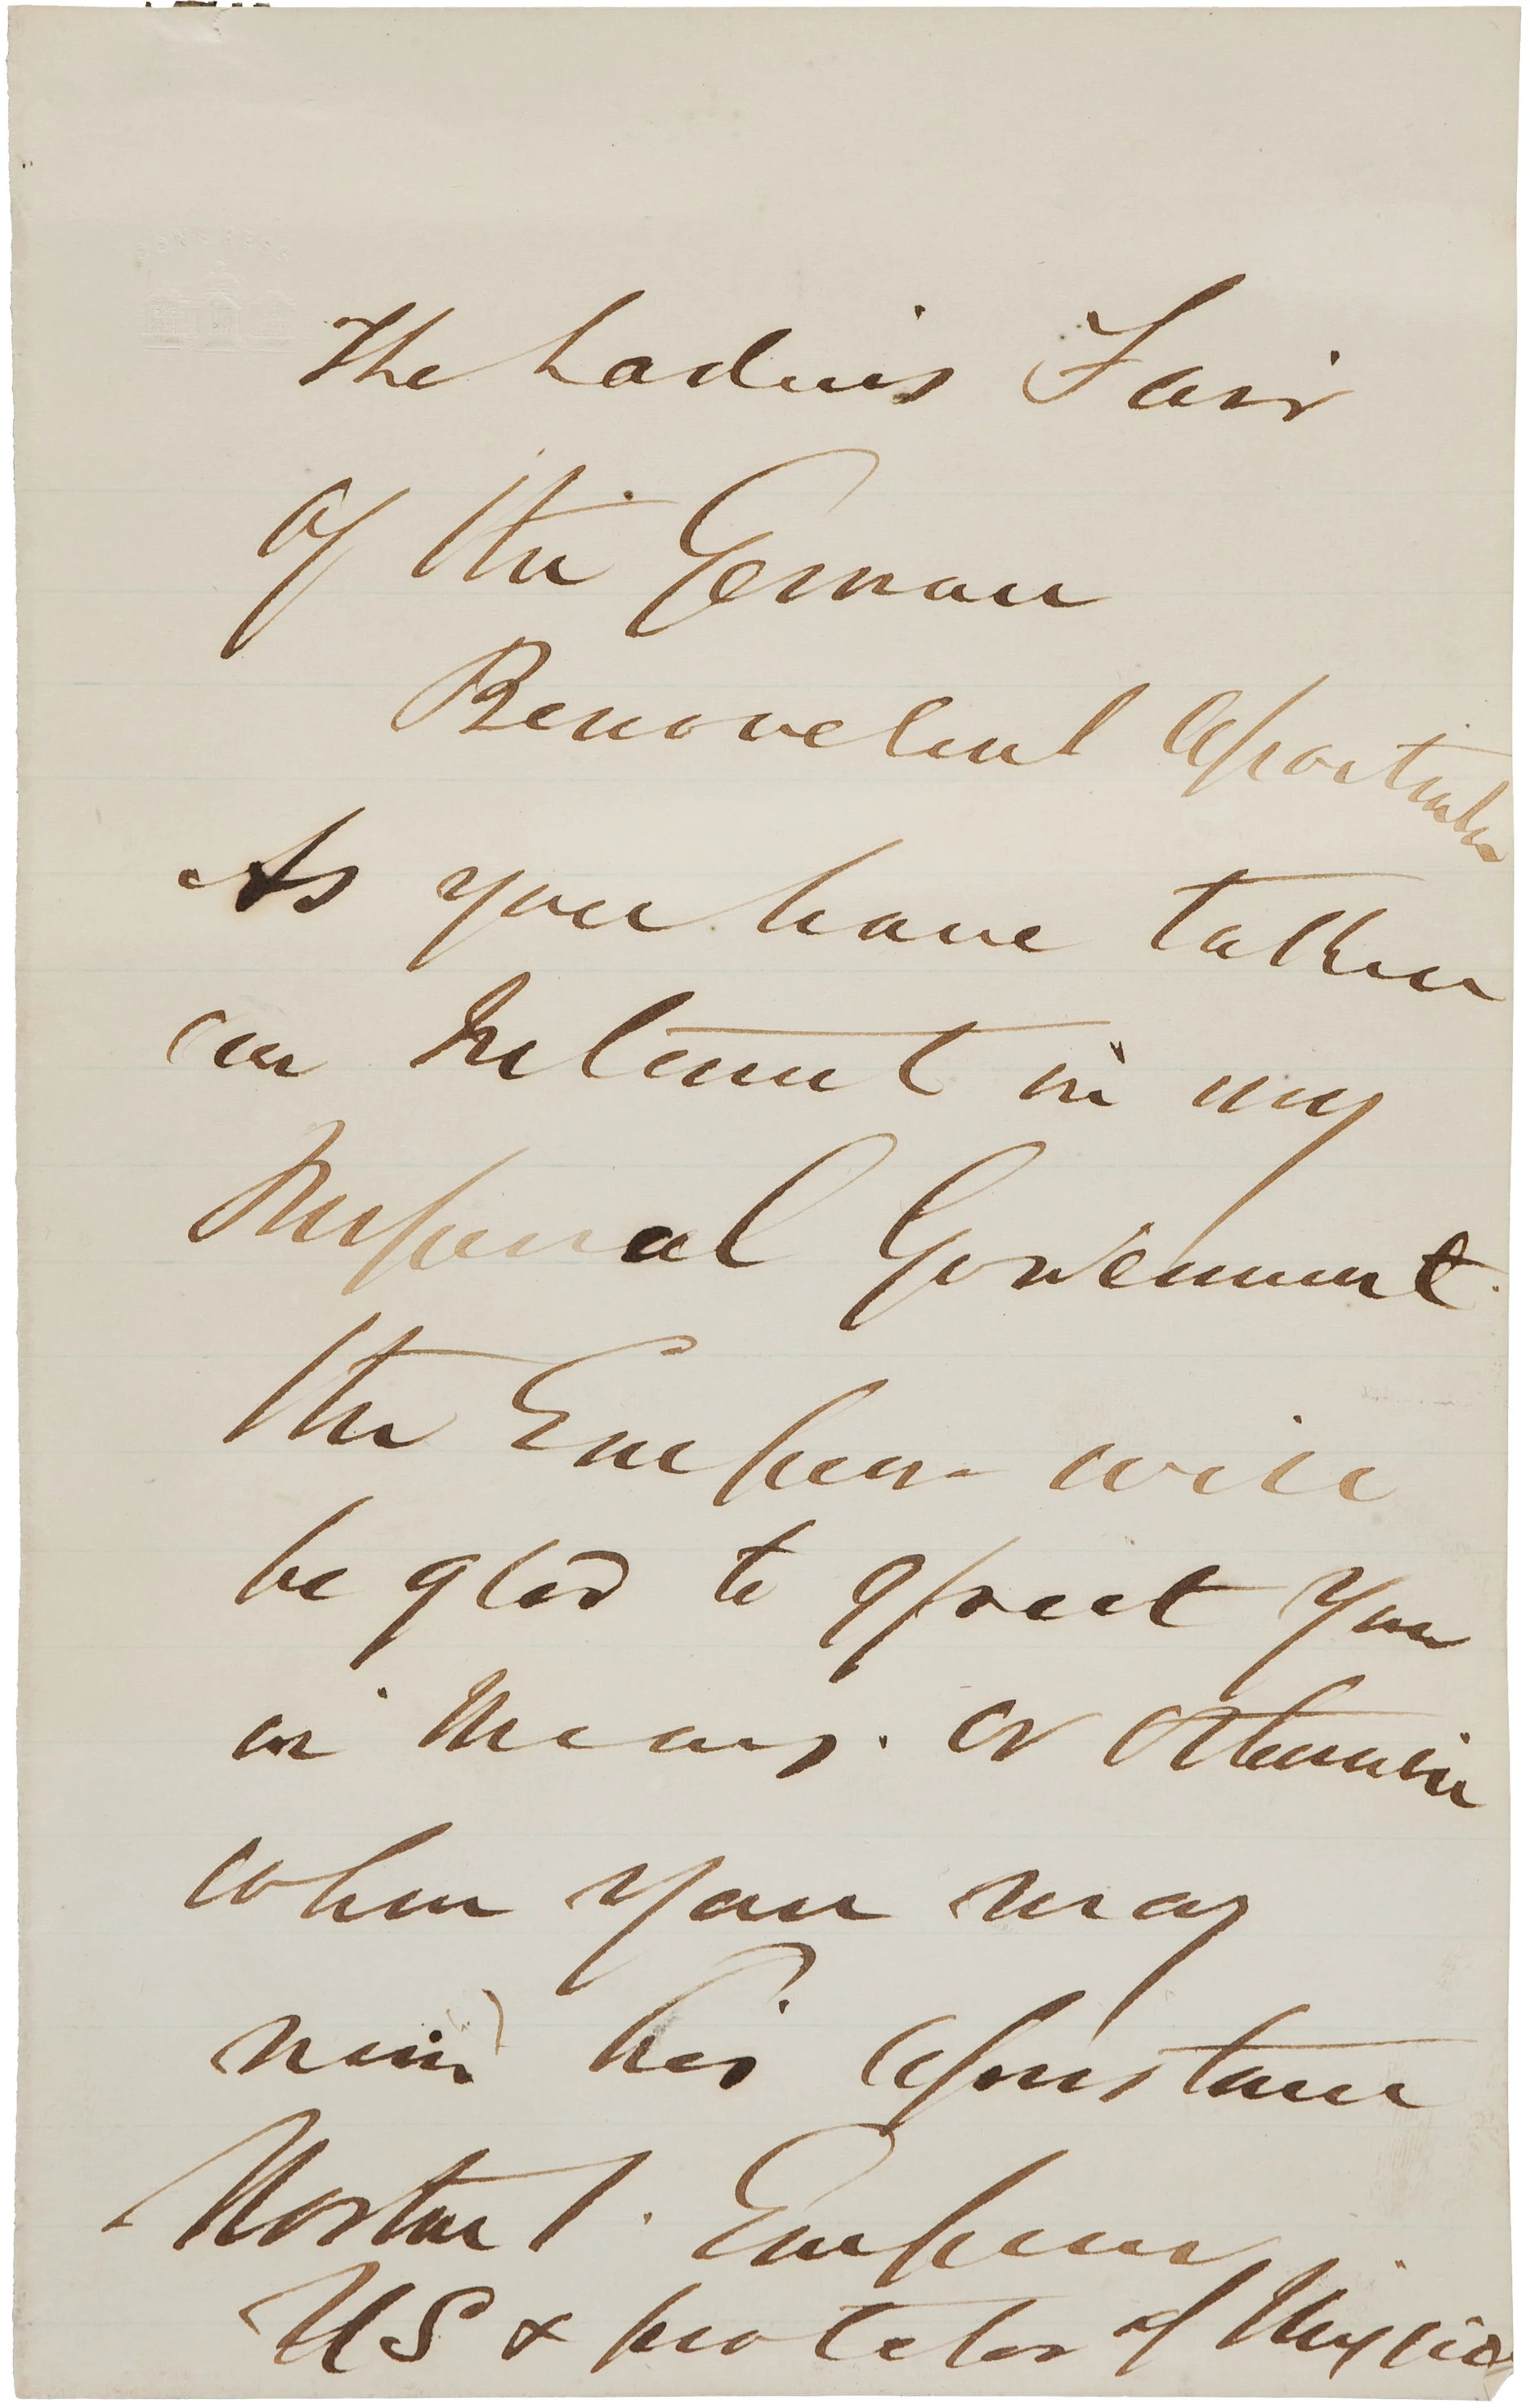 The Ladies Fair
of the German
Benovelent
As you have taken
an Interest in my
Imperial Government
the Emperor will
be glad to you
in Means. or Otherwise
when you may
his
Norton I. Emperor
US & protector of Mexico